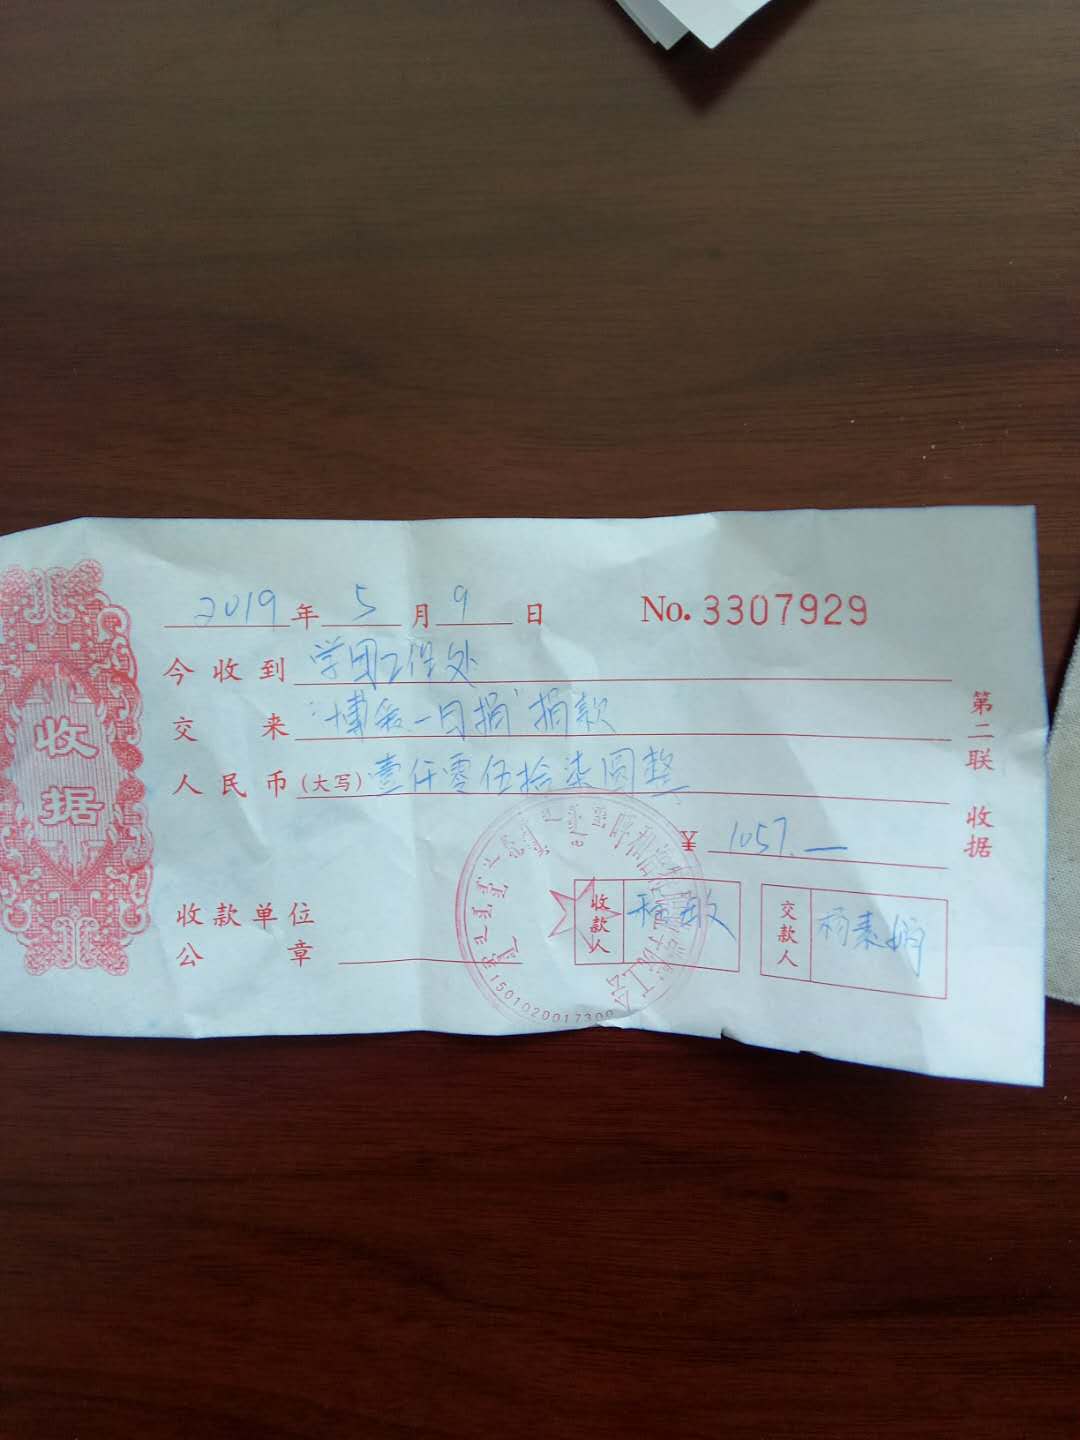 收据
2019年5月9日 No. 3307929
今收到 学团工作处
交来 "博爱一日捐"捐款
人民币(大写) 壹仟零伍拾柒圆整
¥ 1057.—
收款单位
公章
收款人
交款人 杨素娟
第二联 收据
1501020017300